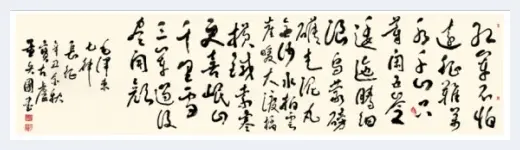 红军不怕
远征難萬
水千山只
等闲五岭
逶迤腾细
浪乌蒙磅
礴走泥丸
金沙水拍雲
崖暖大渡橋
横铁索寒
更喜岷山
千里雪
三军过后
尽开颜
毛泽东
七律
長征
辛丑年秋